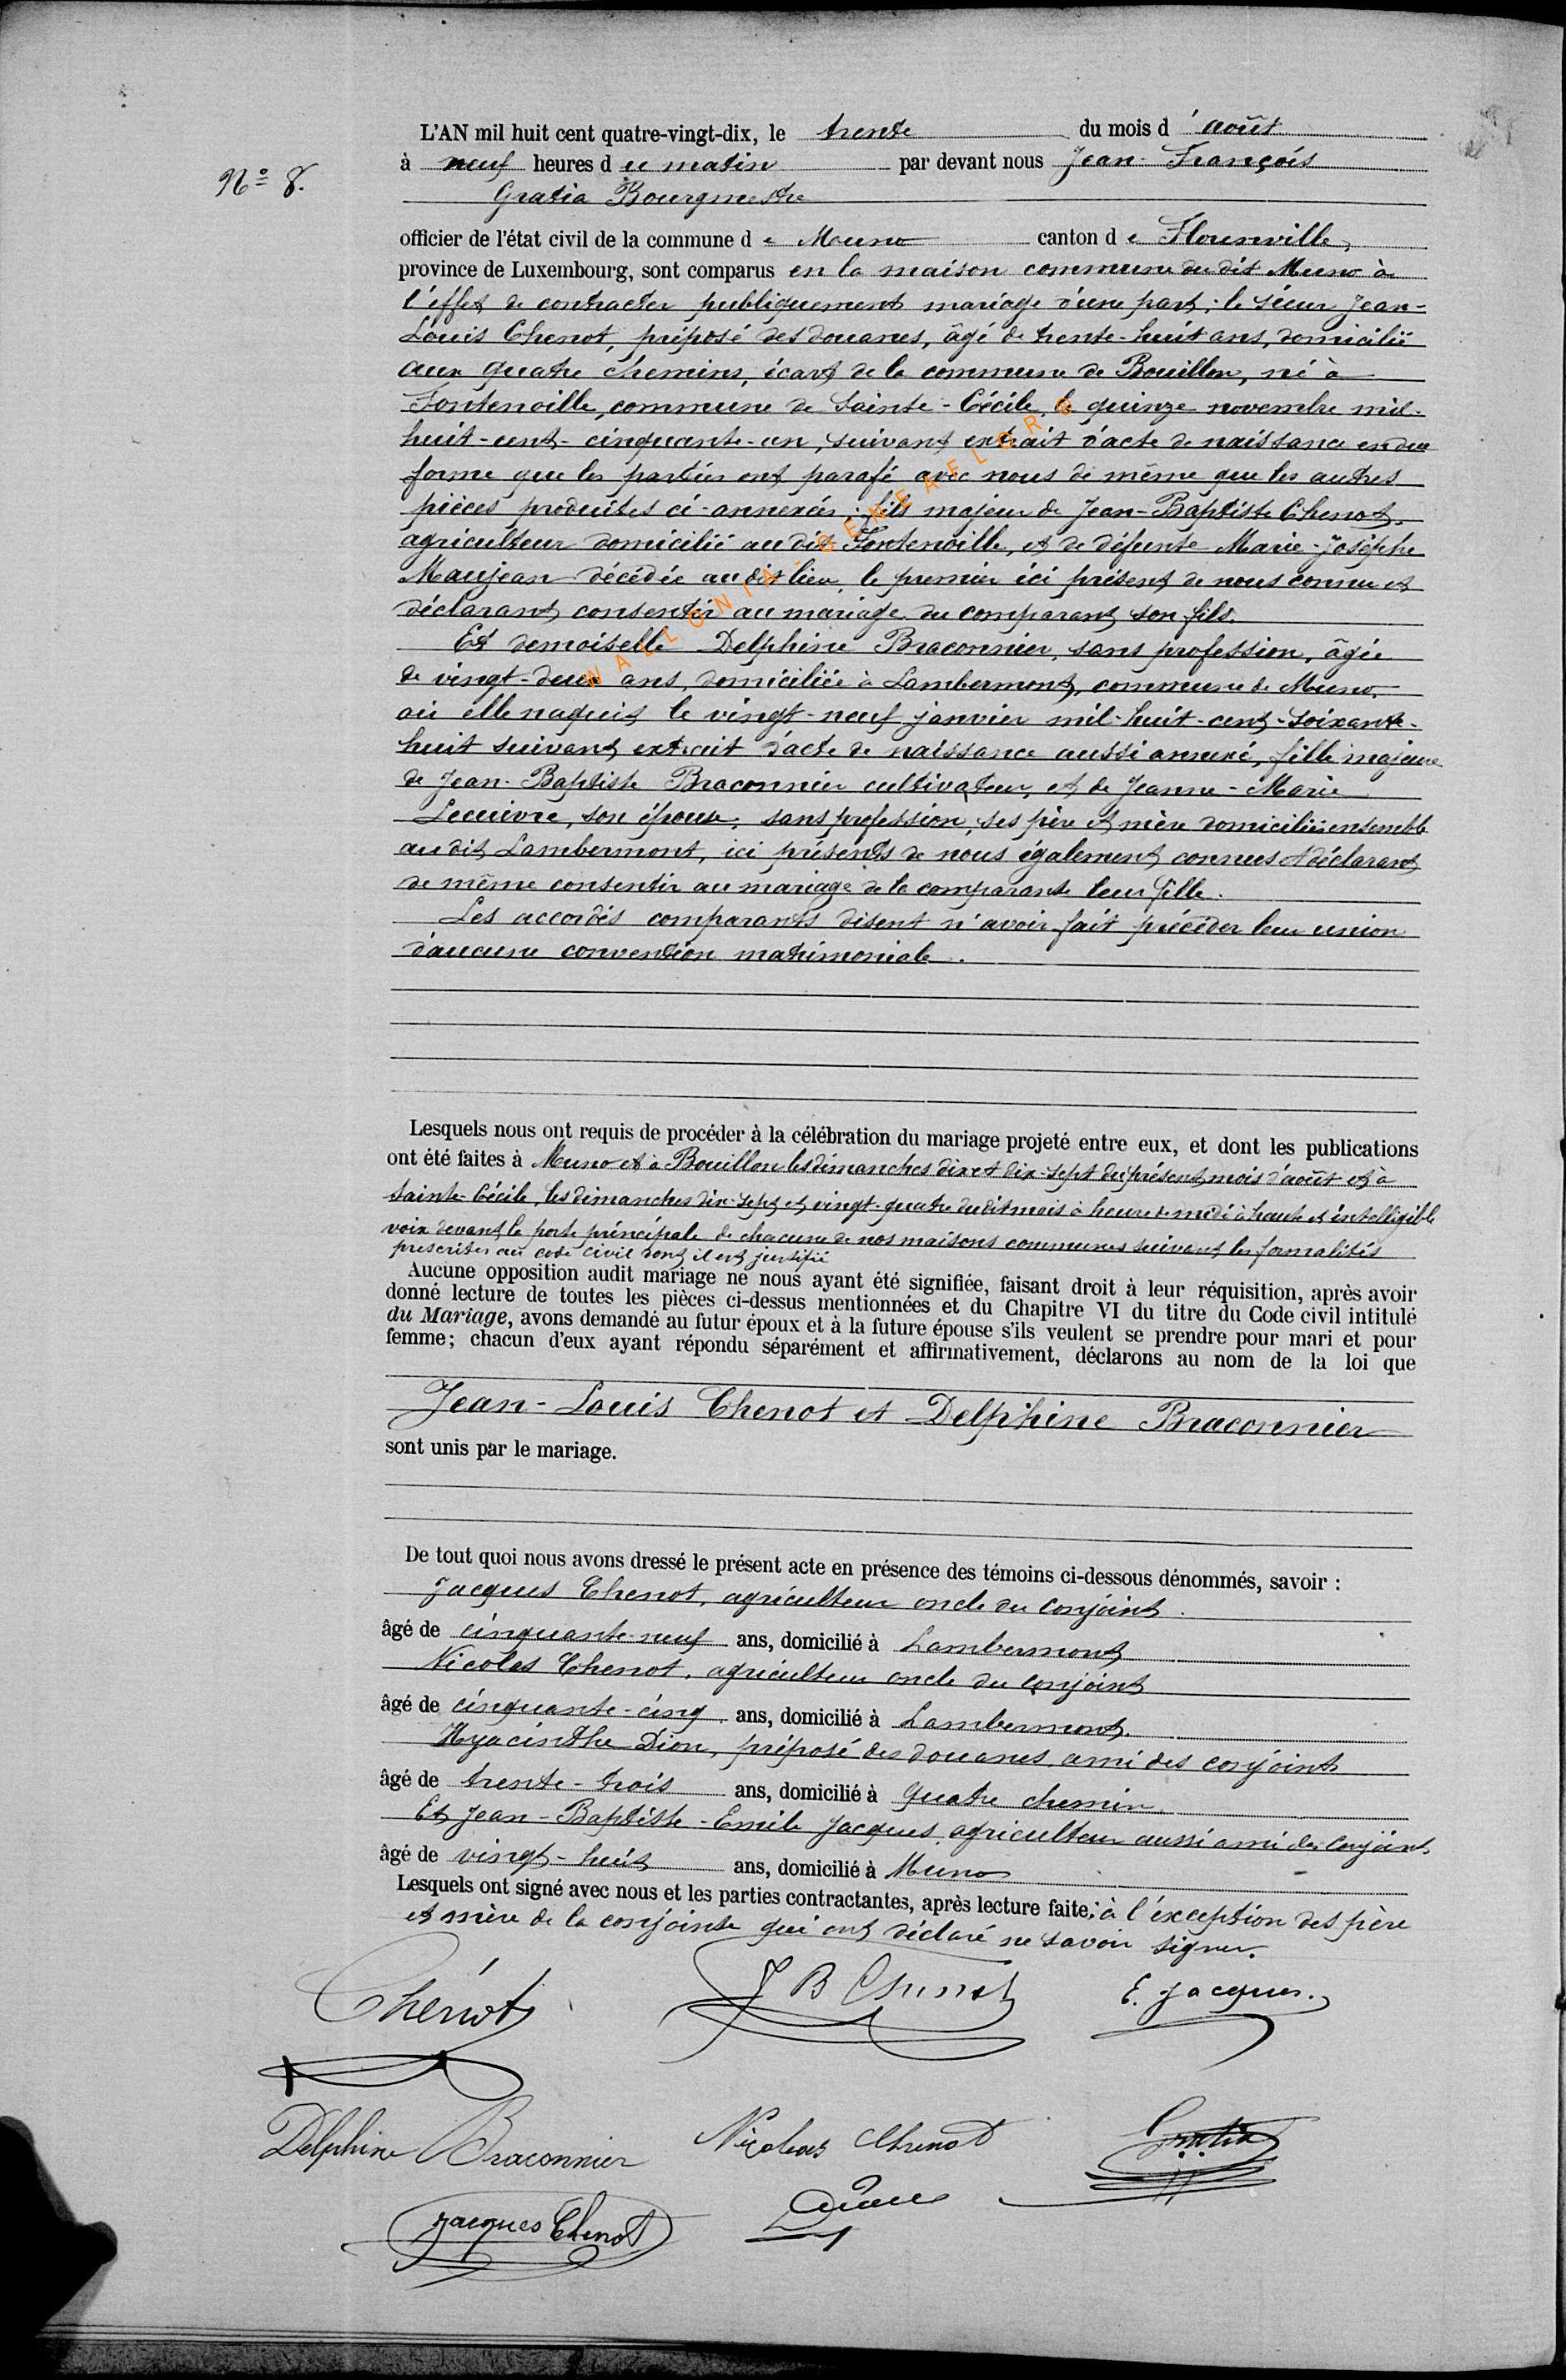 L'AN mil huit cent quatre-vingt-dix, le trente du mois d'août
N° 8.
à neuf heures du matin par devant nous Jean-François
Gratia Bourgmestre
officier de l'état civil de la commune de Muno canton de Florenville,
province de Luxembourg, sont comparus en la maison commune du dit Muno à
l'effet de contracter publiquement mariage d'une part; le sieur Jean-
Louis Chenot, préposé des douanes, âgé de trente-huit ans, domicilié
aux quatre chemins, écart de la commune de Bouillon, né à
Fontenoille, commune de Sainte-Cécile, le quinze novembre mil-
huit-cent-cinquante-un, suivant extrait d'acte de naissance en due
forme que les parties ont parafé avec nous de même que les autres
pièces produites ci-annexées; fils majeur de Jean-Baptiste Chenot,
agriculteur domicilié au dit Fontenoille, et de défunte Marie-Josèphe
Maujean décédée au dit lieu, le premier ici présent de nous connu et
déclarant consentir au mariage du comparant son fils.
Et demoiselle Delphine Braconnier, sans profession, âgée
de vingt-deux ans, domiciliée à Lambermont, commune de Muno,
où elle naquit le vingt-neuf janvier mil-huit-cent-soixante-
huit suivant extrait d'acte de naissance aussi annexé, fille majeure
de Jean-Baptiste Braconnier cultivateur, et de Jeanne-Marie
Lecuivre, son épouse, sans profession, ses père et mère domiciliés ensemble
au dit Lambermont, ici présents de nous également connus et déclarant
de même consentir au mariage de la comparante leur fille.
Les accordés comparants disent n'avoir fait précéder leur union
d'aucune convention matrimoniale.
Lesquels nous ont requis de procéder à la célébration du mariage projeté entre eux, et dont les publications
ont été faites à Muno et à Bouillon les dimanches dix et dix-sept du présent mois d'août et à
Sainte-Cécile, les dimanches dix-sept et vingt-quatre du dit mois à heure de midi à haute et intelligible
voix devant la porte principale de chacune de nos maisons communes suivant les formalités
prescrites au code civil dont il est justifié
Aucune opposition audit mariage ne nous ayant été signifiée, faisant droit à leur réquisition, après avoir
donné lecture de toutes les pièces ci-dessus mentionnées et du Chapitre VI du titre du Code civil intitulé
du Mariage, avons demandé au futur époux et à la future épouse s'ils veulent se prendre pour mari et pour
femme; chacun d'eux ayant répondu séparément et affirmativement, déclarons au nom de la loi que
Jean-Louis Chenot et Delphine Braconnier
sont unis par le mariage.
De tout quoi nous avons dressé le présent acte en présence des témoins ci-dessous dénommés, savoir :
Jacques Chenot, agriculteur oncle du conjoint.
âgé de cinquante-neuf ans, domicilié à Lambermont
Nicolas Chenot, agriculteur oncle du conjoint
âgé de cinquante-cinq ans, domicilié à Lambermont,
Hyacinthe Dion, préposé des douanes, ami des conjoints
âgé de trente-trois ans, domicilié à quatre chemin
Et Jean-Baptiste-Emile Jacques, agriculteur aussi ami des conjoints
âgé de vingt-huit ans, domicilié à Muno
Lesquels ont signé avec nous et les parties contractantes, après lecture faite; à l'exception des père
et mère de la conjointe qui ont déclaré ne savoir signer.
Chénot
J B Chenot
E. Jacques.
Delphine Braconnier
Nicolas Chenot
Gratia
Jacques Chenot
WALLONIA-GENEAFLORE